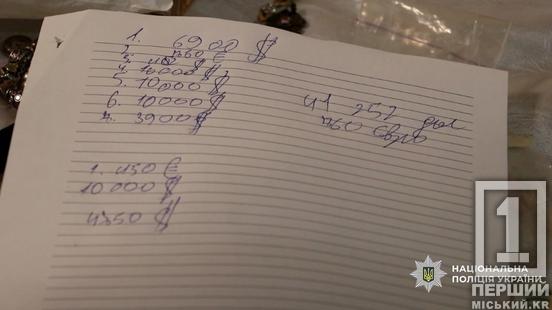 1. 6900 $
2. 760 €
3. 452 $
4. 10000 $
5. 10000 $
6. 10000 $
7. 3900 $
41 252 дол
760 євро
1. 450 €
10 000 $
$
1
НАЦІОНАЛЬНА
ПОЛІЦІЯ УКРАЇНИ
ПЕРШИЙ
МІСЬКИЙ.KR